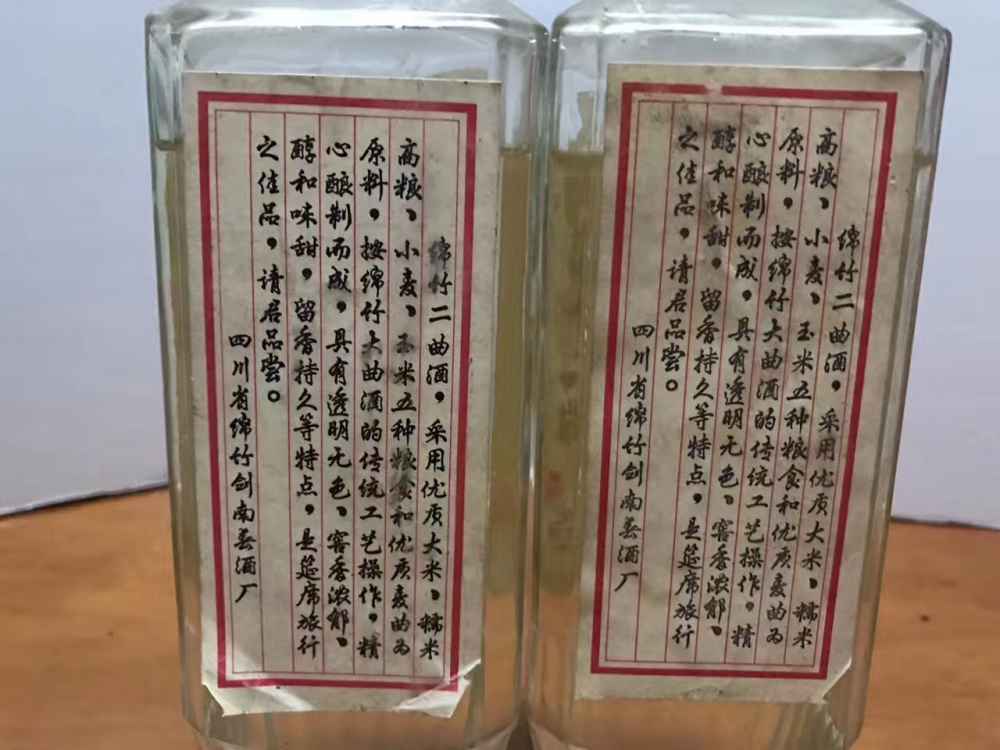 绵竹二曲酒，采用优质大米、糯米
高粮、小麦、玉米五种粮食和优质麦曲为
原料，按绵竹大曲酒的传统工艺操作，精
心酿制而成，具有透明无色、窖香浓郁、
醇和味甜，留香持久等特点，是筵席旅行
之佳品，请君品尝。
四川省绵竹剑南春酒厂
绵竹二曲酒，采用优质大米、糯米
高粮、小麦、玉米五种粮食和优质麦曲为
原料，按绵竹大曲酒的传统工艺操作，精
心酿制而成，具有透明无色、窖香浓郁、
醇和味甜，留香持久等特点，是筵席旅行
之佳品，请君品尝。
四川省绵竹剑南春酒厂